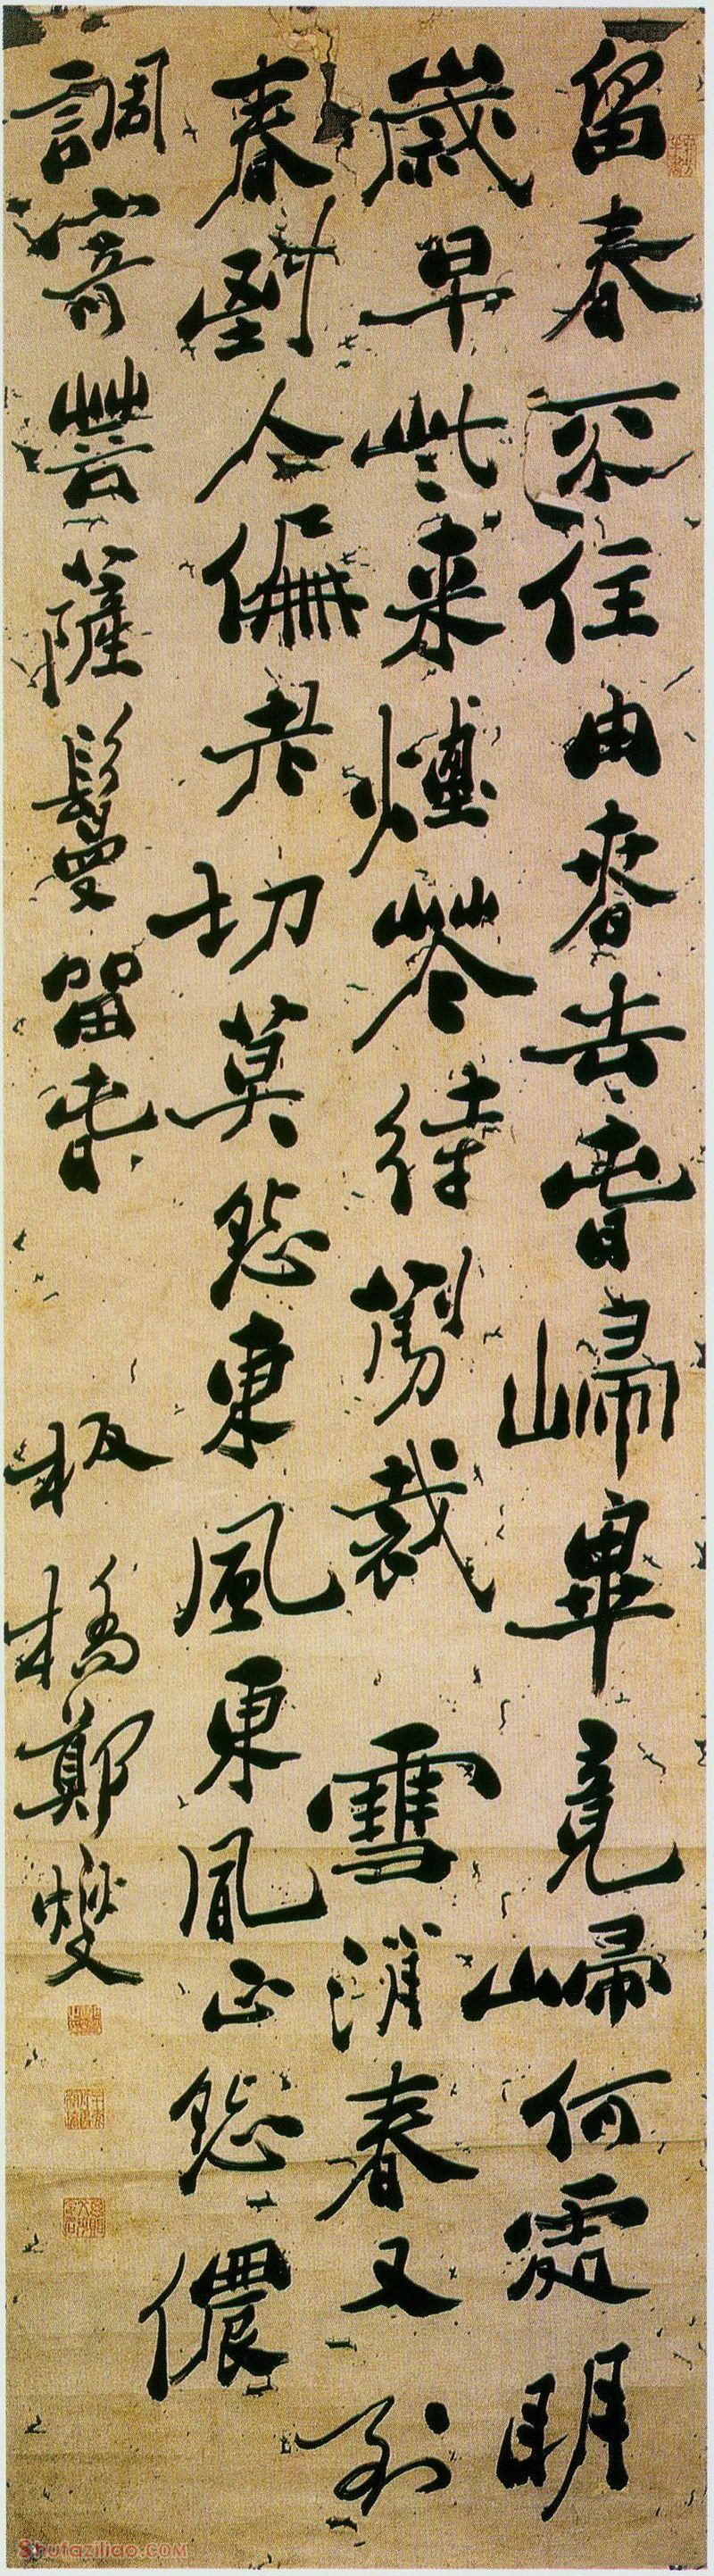 留春不住由春去春歸畢竟歸何處明
歲早些來煙花待剪裁 雪消春又到
春到人偏老切莫怨東風東風正怨儂
調寄菩薩鬘留春 板橋鄭燮
Shufaziliao.COM